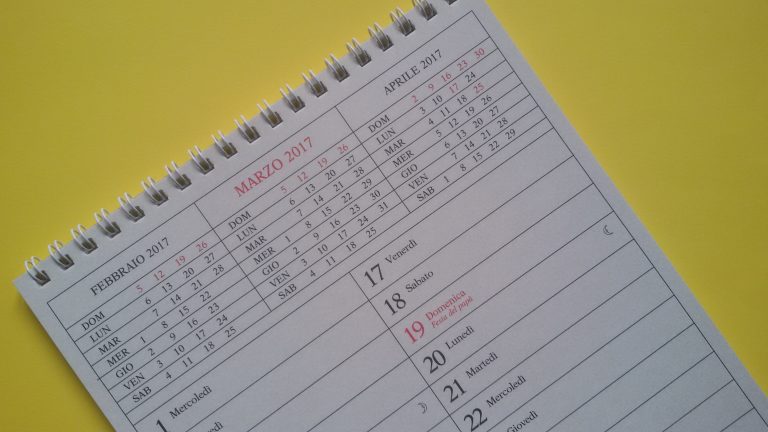 FEBBRAIO 2017
DOM 5 12 19 26
LUN 6 13 20 27
MAR 7 14 21 28
MER 1 8 15 22
GIO 2 9 16 23
VEN 3 10 17 24
SAB 4 11 18 25
MARZO 2017
DOM 5 12 19 26
LUN 6 13 20 27
MAR 7 14 21 28
MER 1 8 15 22 29
GIO 2 9 16 23 30
VEN 3 10 17 24 31
SAB 4 11 18 25
APRILE 2017
DOM 2 9 16 23 30
LUN 3 10 17 24
MAR 4 11 18 25
MER 5 12 19 26
GIO 6 13 20 27
VEN 7 14 21 28
SAB 1 8 15 22 29
1 Mercoledì
17 Venerdì
18 Sabato
19 Domenica
Festa del papà
20 Lunedì
21 Martedì
22 Mercoledì